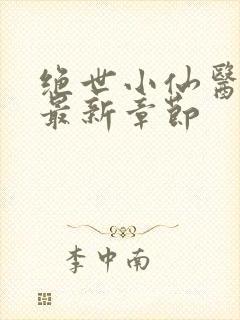 绝世小仙醫
最新章節
李中南